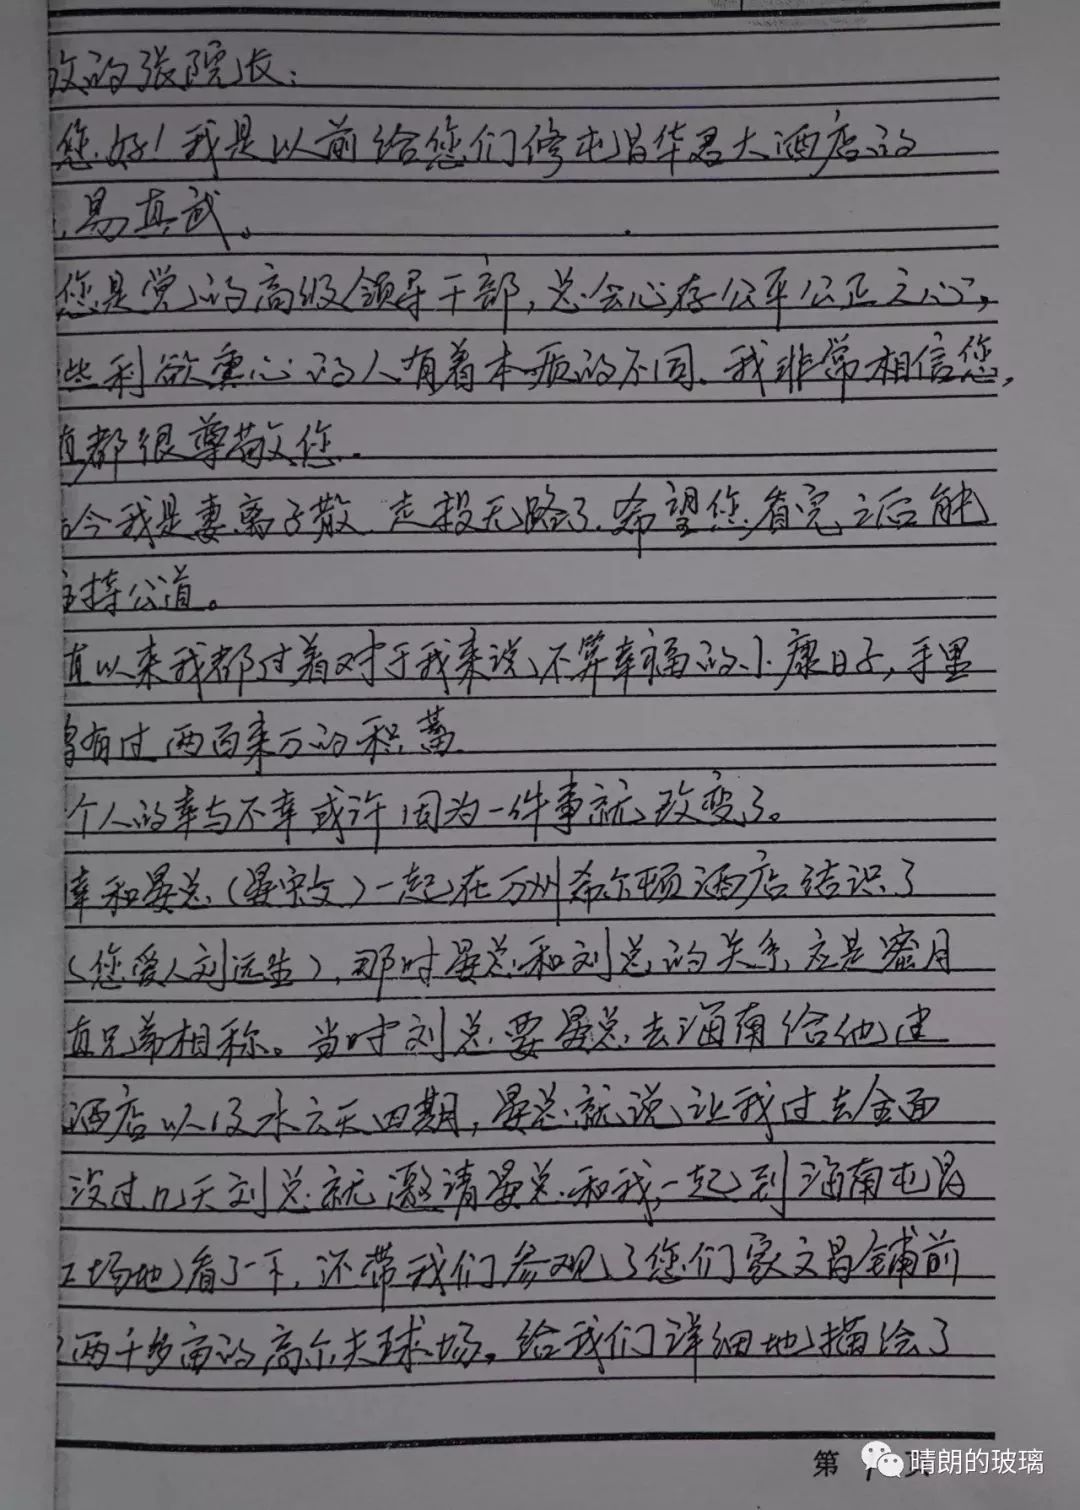 的张院长：
您好！我是以前给您们修屯昌华君大酒店的
易真武。
您是党的高级领导干部，总会心存公平公正之心，
些利欲熏心的人有着本质的不同。我非常相信您，
都很尊敬您.
今我是妻离子散.走投无路了.希望您看完之后能
持公道。
以来我都过着对于我来说不算幸福的小康日子，手里
有过两百来万的积蓄
个人的幸与不幸或许因为一件事就改变了。
幸和晏总（晏宗文）一起在万州希尔顿酒店结识了
（您爱人刘远生），那时晏总和刘总的关系应是蜜月
兄弟相称。当时刘总要晏总去海南给他建
酒店以及水云天四期，晏总就说让我过去全面
没过几天刘总就邀请晏总和我一起到海南屯昌
场地看了一下，还带我们参观了您们家文昌铺前
两千多亩的高尔夫球场。给我们详细地描绘了
第1页
晴朗的玻璃